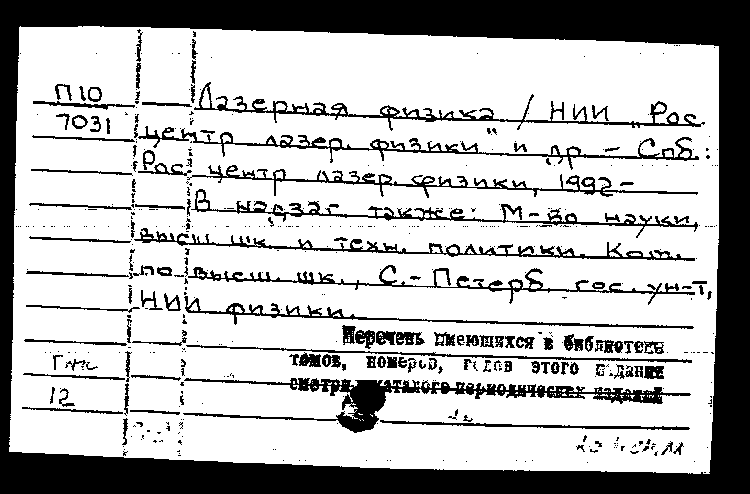 П10
7031
Лазерная физика / НИИ „Рос.
центр лазер. физики" и др. – Спб.:
Рос. центр лазер. физики, 1992–
В надзаг. также: М-во науки,
высш. шк. и техн. политики. Ком.
по высш. шк., С.-Петерб. гос. ун-т,
НИИ физики.
Перечень имеющихся в библиотеке
томов, номеров, годов этого издания
смотри в каталоге периодических изданий
12